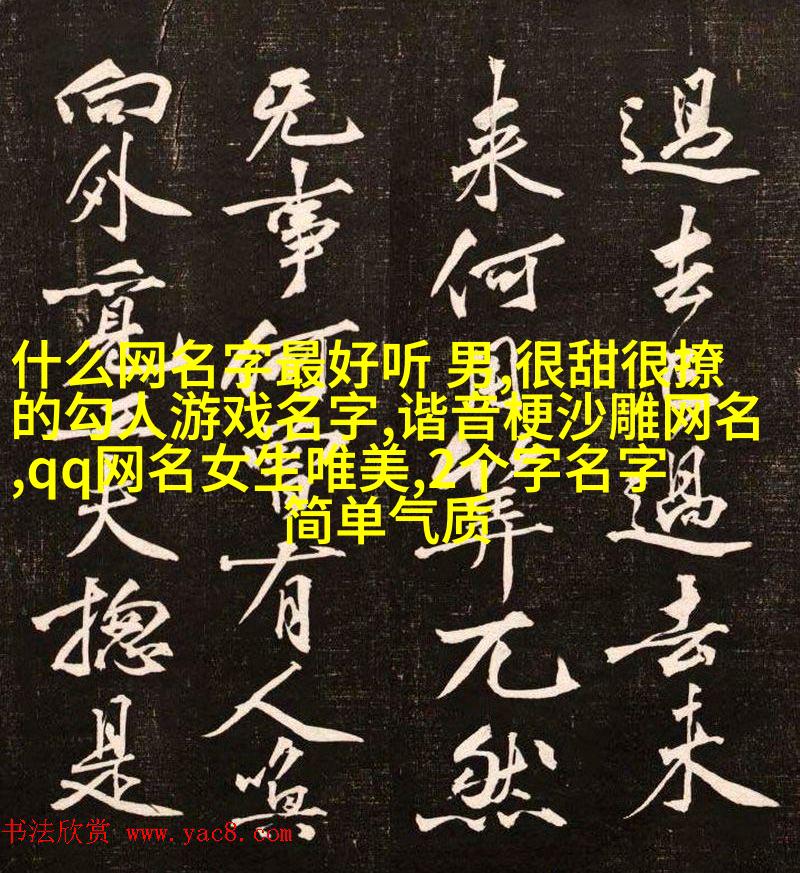 過去過去未
来何用筭兀然
旡事何曾有人喚
向外覓工夫摠是
什么网名字最好听 男,很甜很撩
的勾人游戏名字,谐音梗沙雕网名
,qq网名女生唯美,2个字名字
简单气质
书法欣赏 www.yac8.com